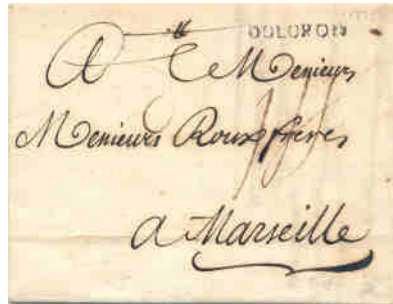 DOLORON
A Messieurs
Messieurs Roux freres
a Marseille